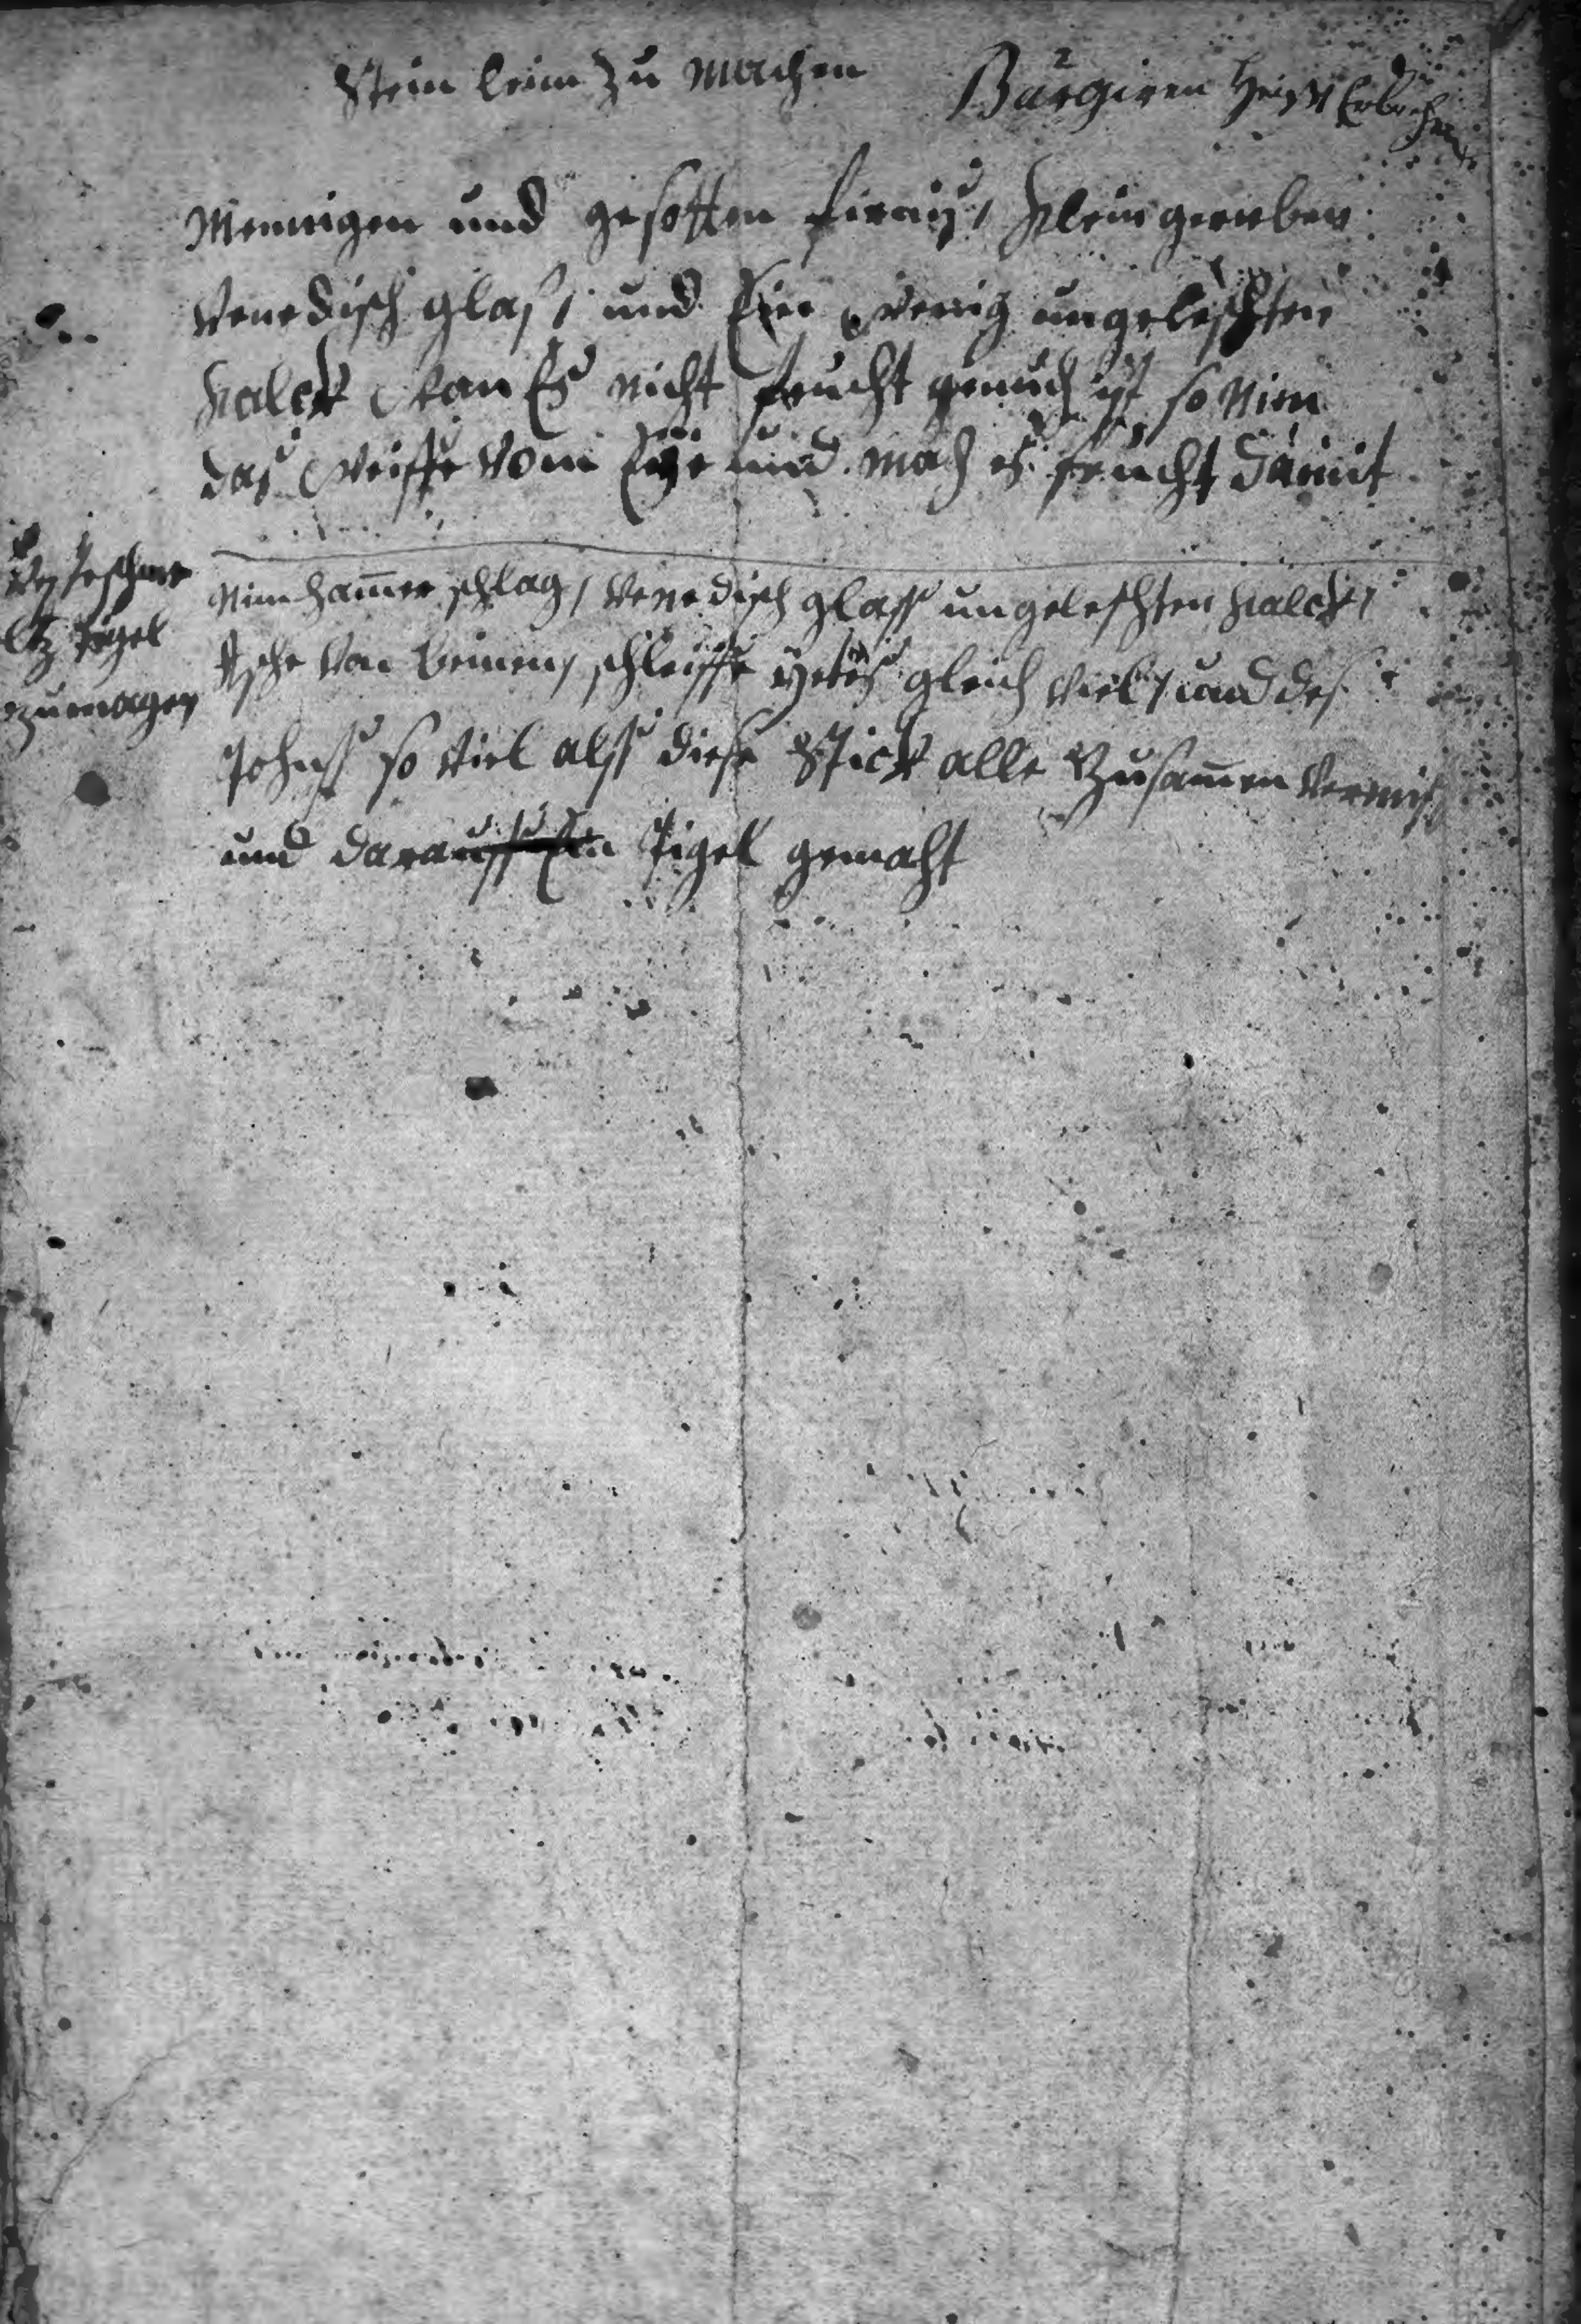 Stein leim zu machen
Purgiren heist Erbrechen
Mennigen und gesotten firnis, klein gerieben
Venedisch glaß, und Ein wenig ungeleschten
kalck wan Es nicht feucht genuch ist so Nim
das weisse vom Eye und mach es feucht damit
Tigel
zu machen
Nim ham̄er schlag, Venedisch glass ungeleschten kalck,
Asche von beinen, schleiffe yedes gleich viel, und des
Tohns so viel alss diese Stick alle Zusam̄en vermischt
und darauss Ein Tigel gemacht